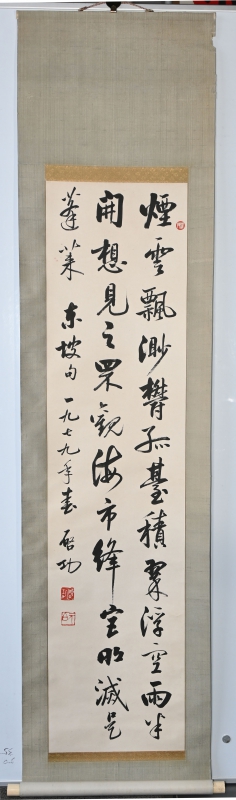 煙雲飄渺欝孤臺積翠浮空雨半
開想見之罘觀海市絳宮明滅是
蓬萊 東坡句 一九七九年春 啓功